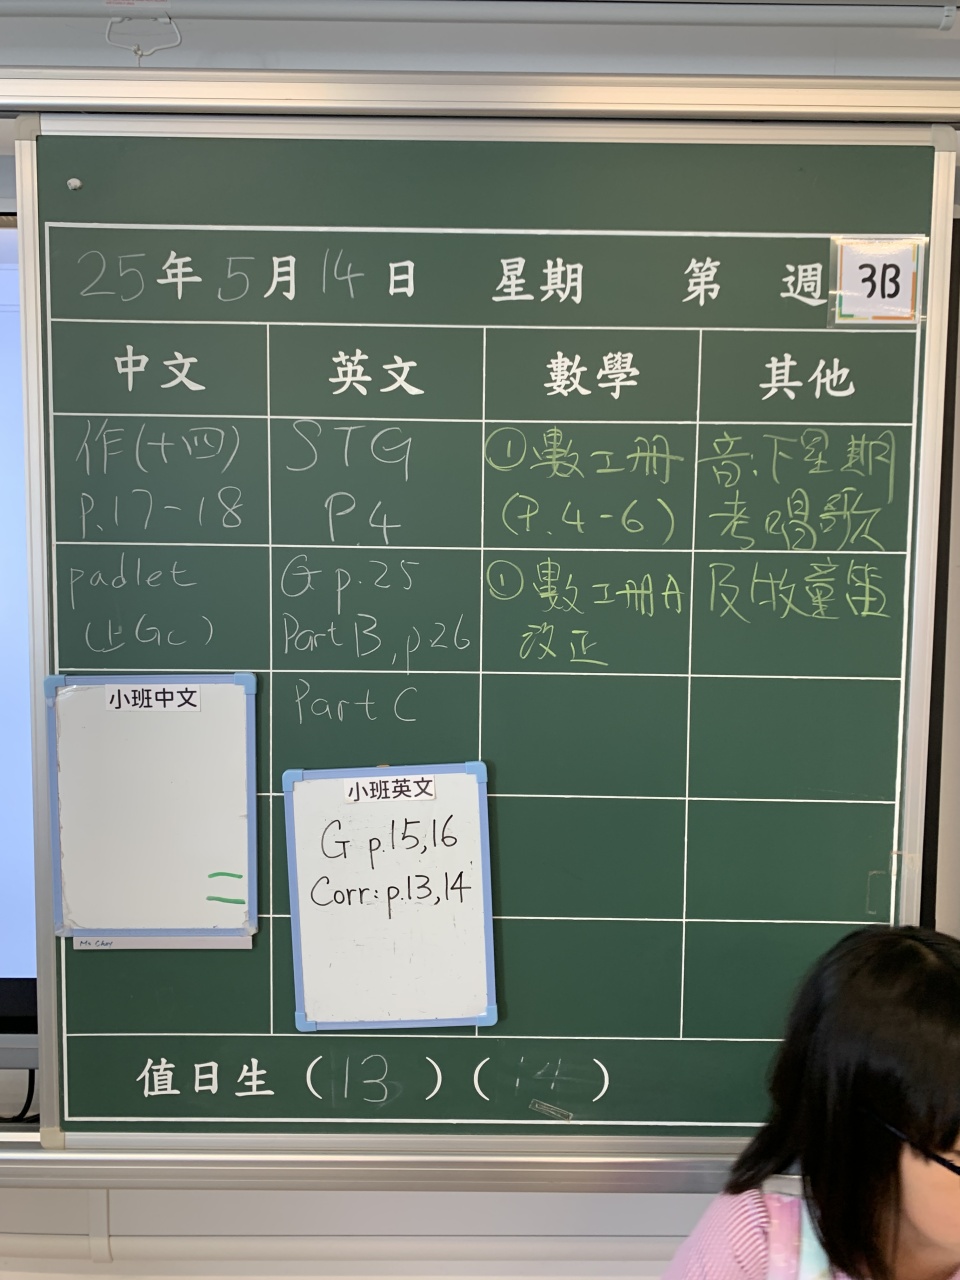 25年5月14日 星期 第 週 3B
中文 英文 數學 其他
作(十四)
P.17-18
padlet
(上GC)
小班中文
Ms Choy
STG
P.4
G p.25
Part B, p.26
Part C
小班英文
G p.15,16
Corr: p.13,14
① 數工冊
(P.4-6)
① 數工冊A
改正
音:下星期
考唱歌
及牧童笛
值日生 (13) (14)